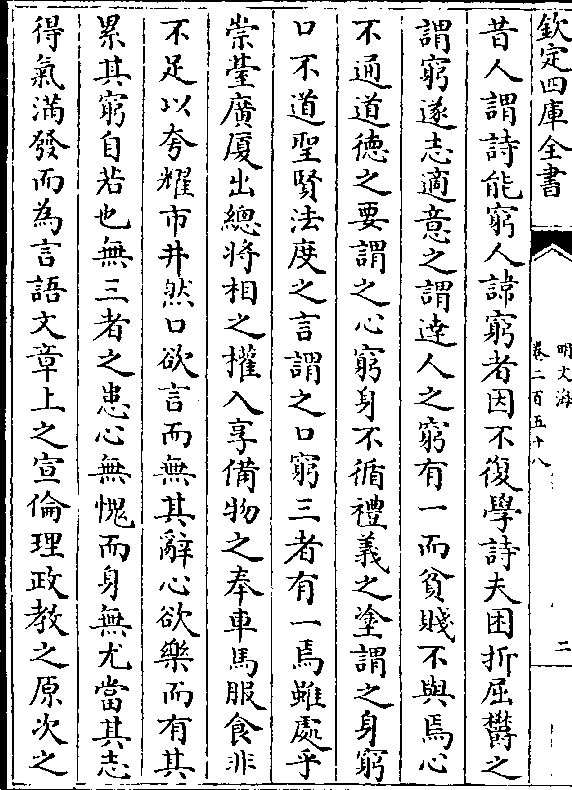 欽定四庫全書
明文海
卷二百五十八
二
昔人謂詩能窮人諱窮者因不復學詩夫困折屈鬱之
謂窮遂志適意之謂達人之窮有一而貧賤不與焉心
不通道德之要謂之心窮身不循禮義之塗謂之身窮
口不道聖賢法度之言謂之口窮三者有一焉雖處乎
崇臺廣厦出總將相之權入享備物之奉車馬服食非
不足以夸耀市井然口欲言而無其辭心欲樂而有其
累其窮自若也無三者之患心無愧而身無尤當其志
得氣滿發而為言語文章上之宣倫理政教之原次之